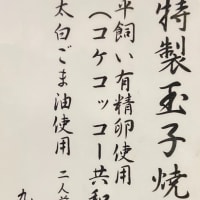 特製玉子焼
平飼い有精卵使用
（コケコッコー共和
太白ごま油使用 二人前
九